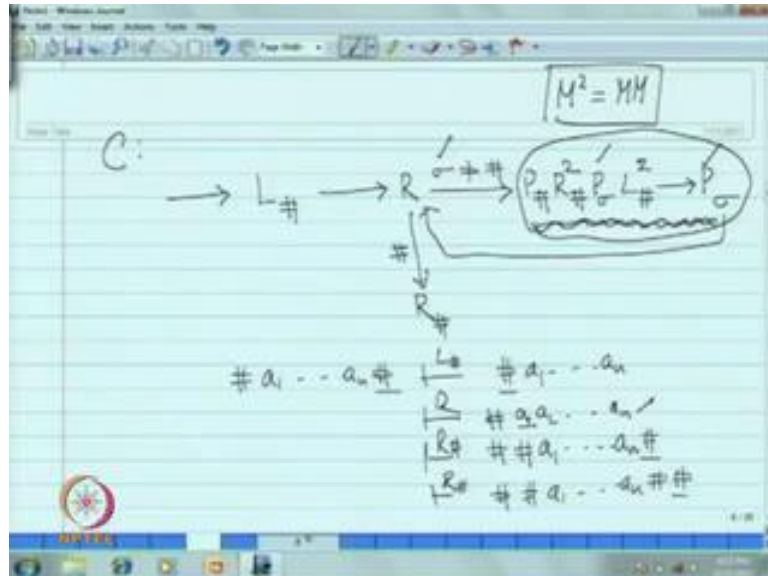 M² = MM
C:
→ L_# → R —σ≠#→ P_# R²_# P_σ L²_# → P_σ
#
R_#
# a₁ - - aₙ # |L_# # a₁ - - - aₙ
|R # a₁ a₂ - - - aₙ
|R_# # # a₁ - - - aₙ #
|R_# # # a₁ - - - aₙ # #
NPTEL